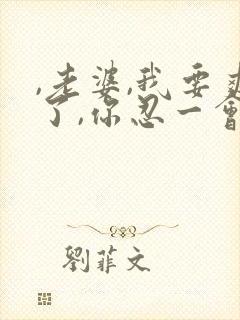 ,老婆,我要爽
了,你忍一會
劉菲文